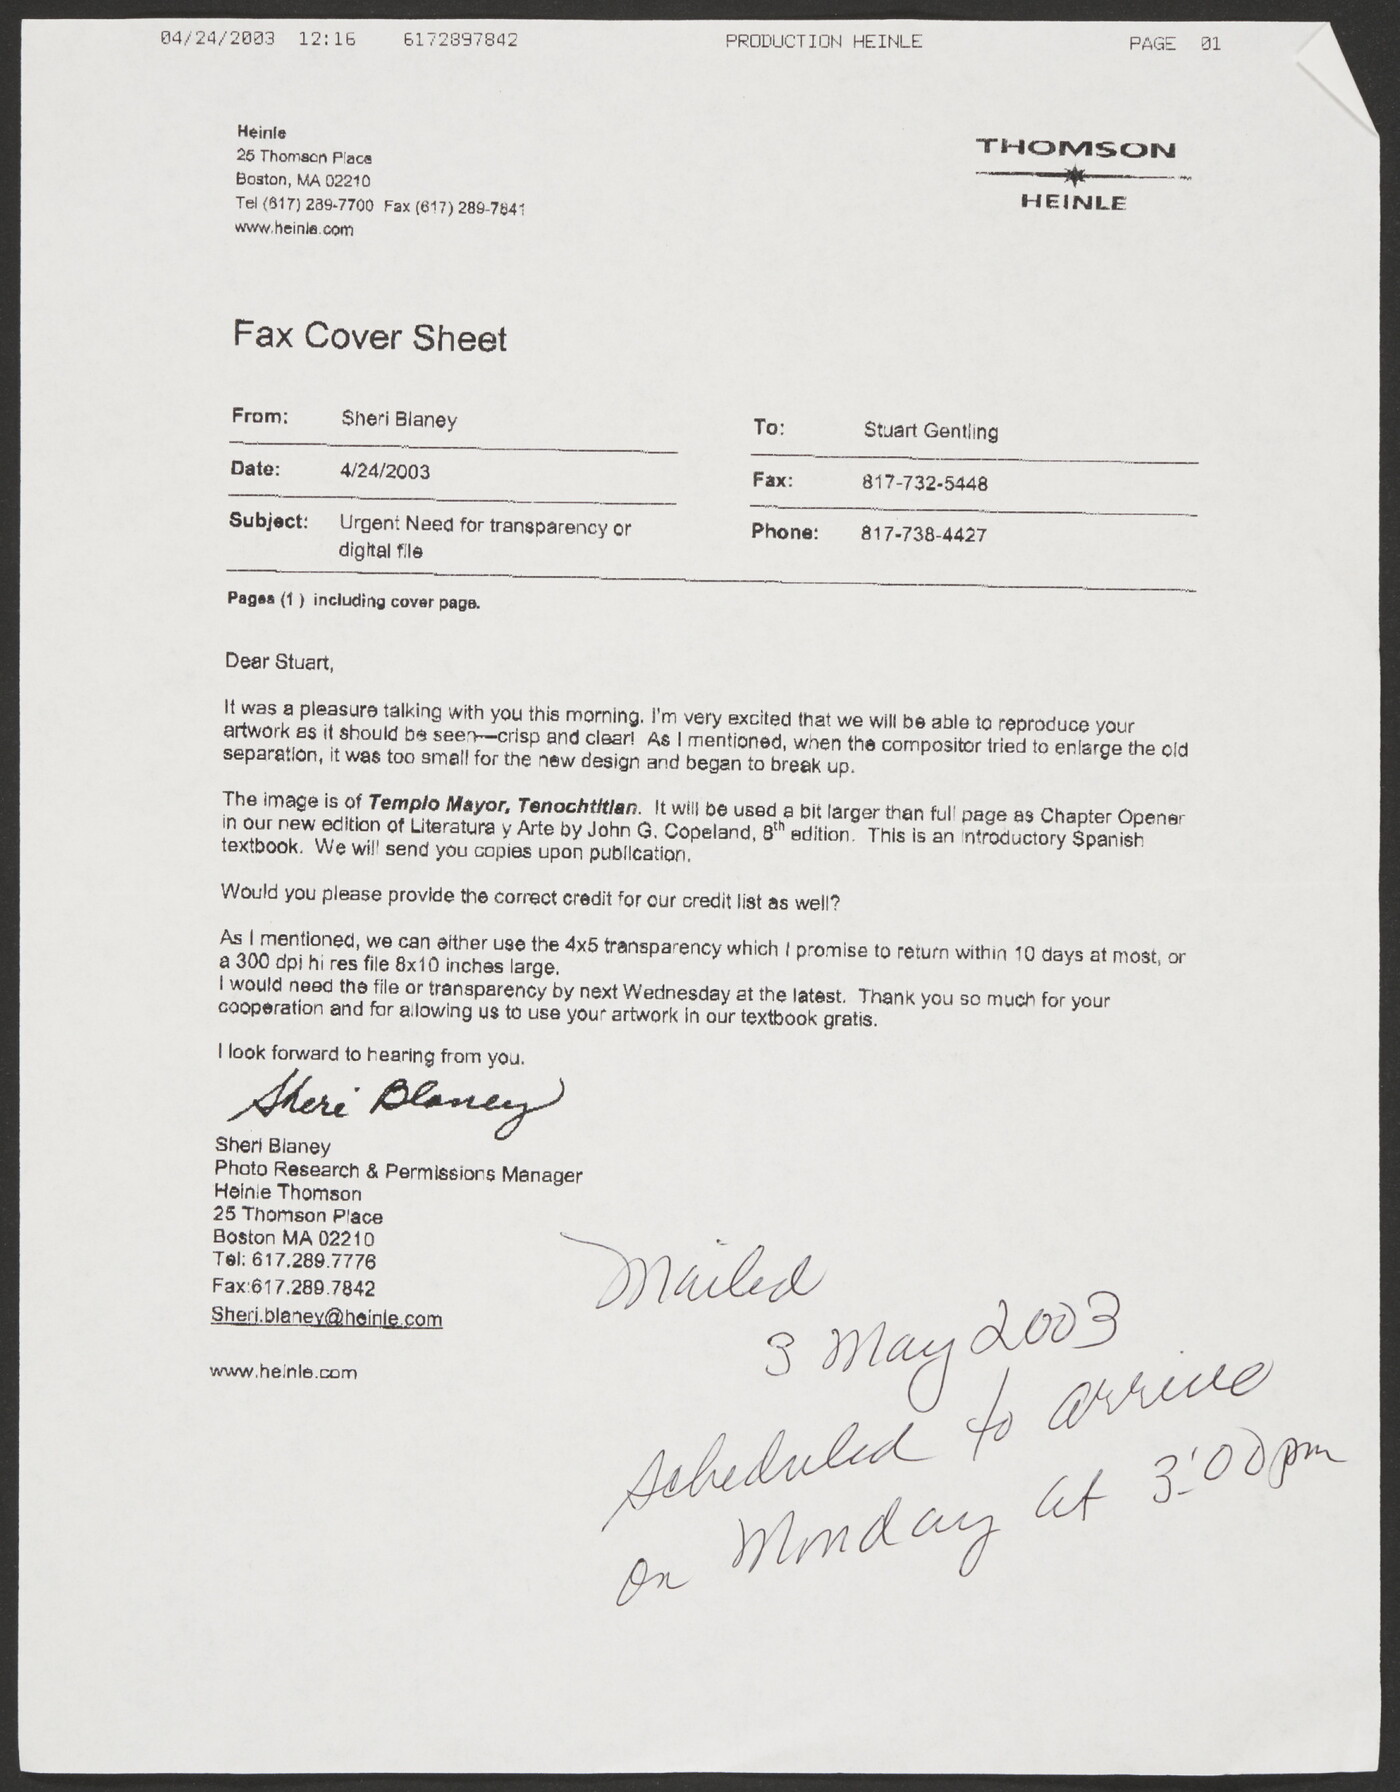 04/24/2003 12:16 6172897842 PRODUCTION HEINLE PAGE 01
Heinle
25 Thomson Place
Boston, MA 02210
Tel (617) 289-7700 Fax (617) 289-7841
www.heinle.com
THOMSON
HEINLE
Fax Cover Sheet
From: Sheri Blaney
To: Stuart Gentling
Date: 4/24/2003
Fax: 817-732-5448
Subject: Urgent Need for transparency or
digital file
Phone: 817-738-4427
Pages (1 ) including cover page.
Dear Stuart,
It was a pleasure talking with you this morning. I'm very excited that we will be able to reproduce your
artwork as it should be seen—crisp and clear! As I mentioned, when the compositor tried to enlarge the old
separation, it was too small for the new design and began to break up.
The image is of Templo Mayor, Tenochtitlan. It will be used a bit larger than full page as Chapter Opener
in our new edition of Literatura y Arte by John G. Copeland, 8th edition. This is an introductory Spanish
textbook. We will send you copies upon publication.
Would you please provide the correct credit for our credit list as well?
As I mentioned, we can either use the 4x5 transparency which I promise to return within 10 days at most, or
a 300 dpi hi res file 8x10 inches large.
I would need the file or transparency by next Wednesday at the latest. Thank you so much for your
cooperation and for allowing us to use your artwork in our textbook gratis.
I look forward to hearing from you.
Sheri Blaney
Sheri Blaney
Photo Research & Permissions Manager
Heinle Thomson
25 Thomson Place
Boston MA 02210
Tel: 617.289.7776
Fax:617.289.7842
Sheri.blaney@heinle.com
www.heinle.com
Mailed
3 May 2003
scheduled to arrive
on Monday at 3:00pm